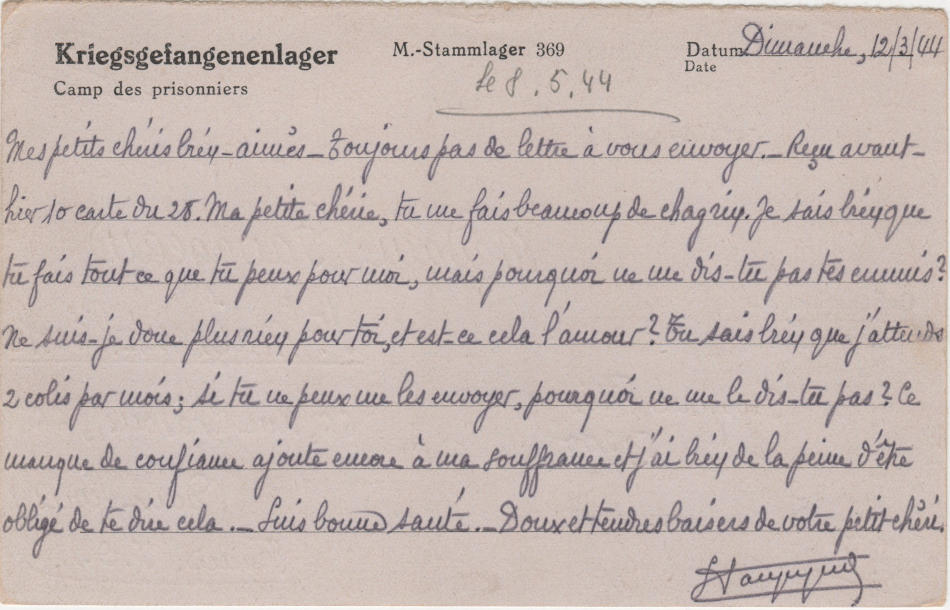 Kriegsgefangenenlager M.-Stammlager 369 Datum Dimanche, 12/3/44
Camp des prisonniers Date
le 8.5.44
Mes petits chéris bien-aimés – Toujours pas de lettre à vous envoyer. – Reçu avant-
hier 10 carte du 28. Ma petite chérie, tu me fais beaucoup de chagrin. Je sais bien que
tu fais tout ce que tu peux pour moi, mais pourquoi ne me dis-tu pas tes ennuis?
Ne suis-je donc plus rien pour toi, et est-ce cela l'amour? Tu sais bien que j'attends
2 colis par mois; si tu ne peux me les envoyer, pourquoi ne me le dis-tu pas? Ce
manque de confiance ajoute encore à ma souffrance et j'ai bien de la peine d'être
obligé de te dire cela. – Suis bonne santé. – Doux et tendres baisers de votre petit chéri.